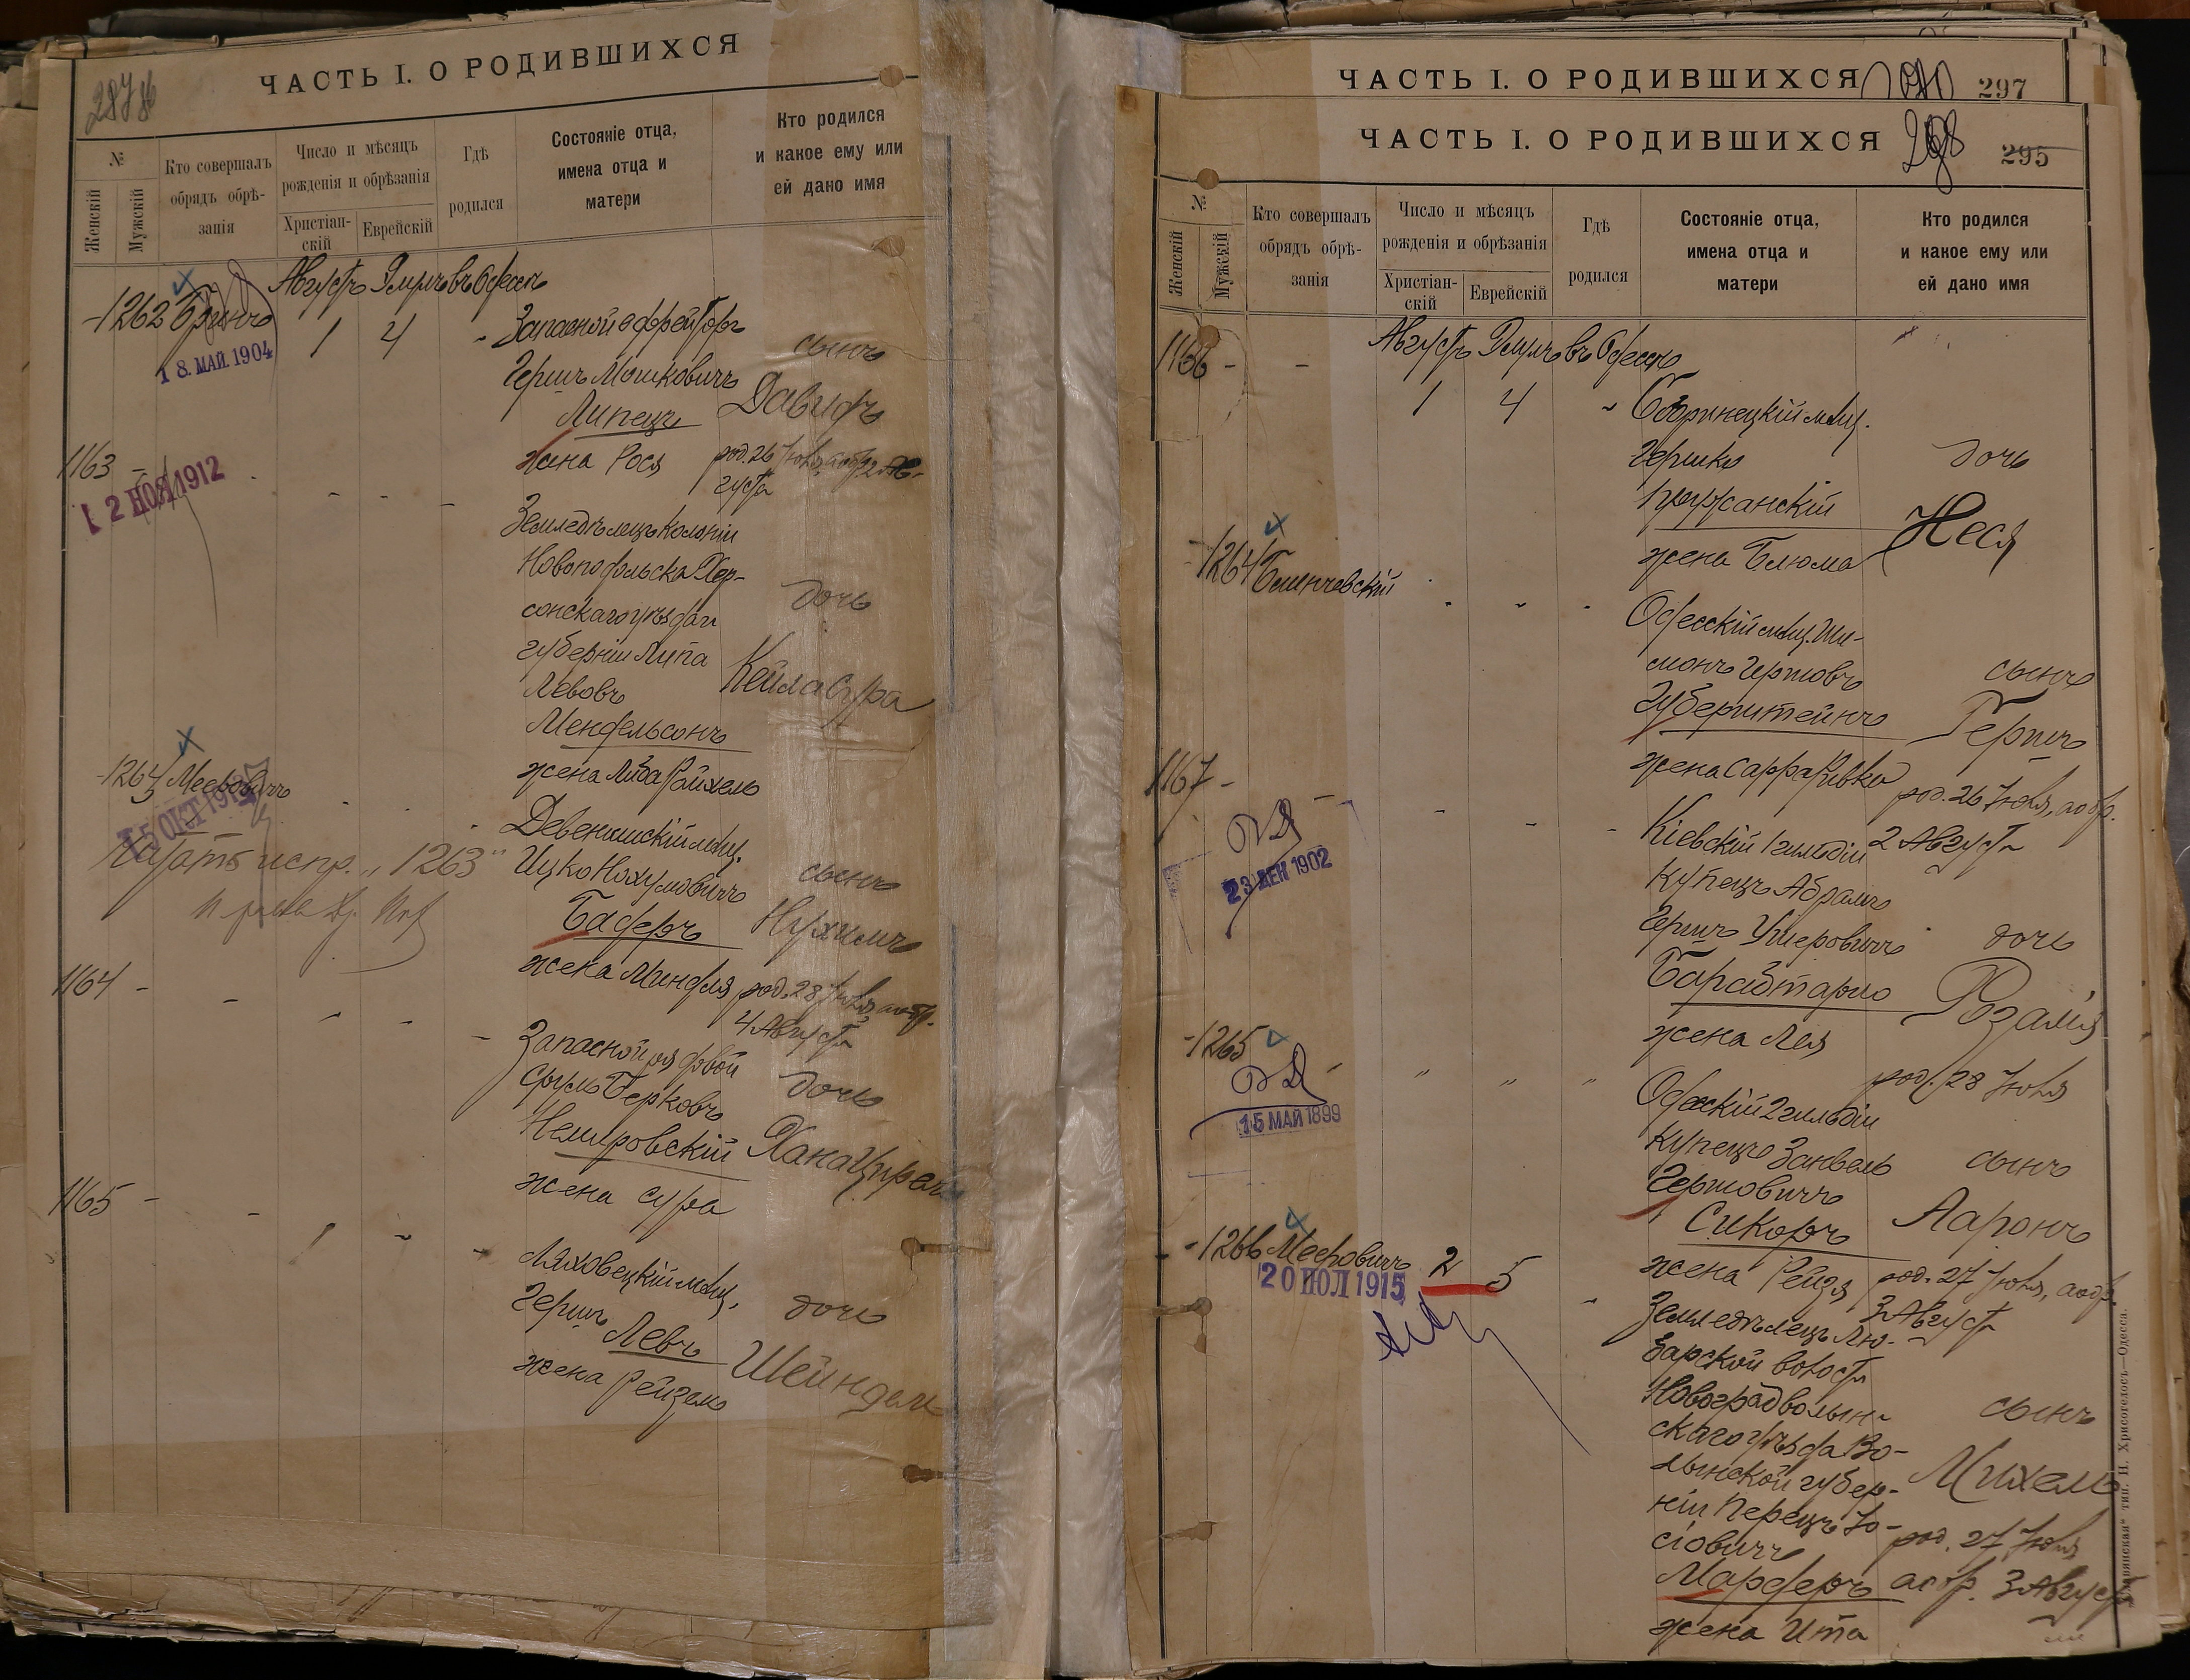 ЧАСТЬ I. О РОДИВШИХСЯ
№
Женскій
Мужскій
Кто совершалъ
обрядъ обрѣ-
занія
Число и мѣсяцъ
рожденія и обрѣзанія
Христіан-
скій
Еврейскій
Гдѣ
родился
Состояніе отца,
имена отца и
матери
Кто родился
и какое ему или
ей дано имя
Августъ Элулъ въ Одессѣ
1262
18. МАЙ. 1904
1 4
Запасной ефрейторъ
сынъ
Гершъ Мошковичъ
Давидъ
Липецъ
жена Рося
род. 26 Іюля, а обр. 2 Ав-
густа
1163 -
12 НОЯ 1912
Земледѣлецъ колоніи
Новоподольска Хер-
сонскаго уѣзда и
дочь
губерніи Липа
Левовъ
Кейла Сура
Мендельсонъ
жена Либа Райхель
1264 Мееровичъ
Девенишскій мѣщ.
Читать испр. „1263"
Ицко Нохумовичъ
сынъ
Бадеръ
Нухимъ
жена Миндля
род. 28 Іюля, а обр.
4 Августа
1164 -
Запасной рядовой
Сруль Берковъ
дочь
Немировскій
жена Сура
1165 -
Ляховецкій мѣщ.
Гершъ
дочь
Левъ
Шейндель
жена Рейзель
ЧАСТЬ I. О РОДИВШИХСЯ
297
ЧАСТЬ I. О РОДИВШИХСЯ
298
295
№
Женскій
Мужскій
Кто совершалъ
обрядъ обрѣ-
занія
Число и мѣсяцъ
рожденія и обрѣзанія
Христіан-
скій
Еврейскій
Гдѣ
родился
Состояніе отца,
имена отца и
матери
Кто родился
и какое ему или
ей дано имя
Августъ Элулъ въ Одессѣ
1166 -
1 4
Бобринецкій мѣщ.
Гершко
дочь
Неся
жена Блюма
1264
Одесскій мѣщ. Ши-
монъ Гершовъ
сынъ
Губерштейнъ
Гершъ
жена Сарра Ривка
род. 26 Іюля, а обр.
2 Августа
1167 -
23 ДЕК 1902
Кіевскій 1 гильдіи
купецъ Абрамъ
Гершъ Ушеровичъ
дочь
Барабтарло
Розалія
жена Лея
род. 28 Іюля
1265
15 МАЙ 1899
Одесскій 2 гильдіи
купецъ Занвель
сынъ
Гершовичъ
Сикоръ
Ааронъ
жена Рейзя
род. 27 Іюля, а обр.
3 Августа
1266 Мееровичъ
20 ІЮЛ 1915
2 5
Земледѣлецъ Лю-
барской волости
Новоградволын-
сынъ
скаго уѣзда Во-
лынской губер-
Михель
ніи Перецъ Іо-
род. 27 Іюля
сіовичъ
Мардеръ
а обр. 3 Августа
жена Ита
тип. Н. Хрисогелосъ—Одесса.